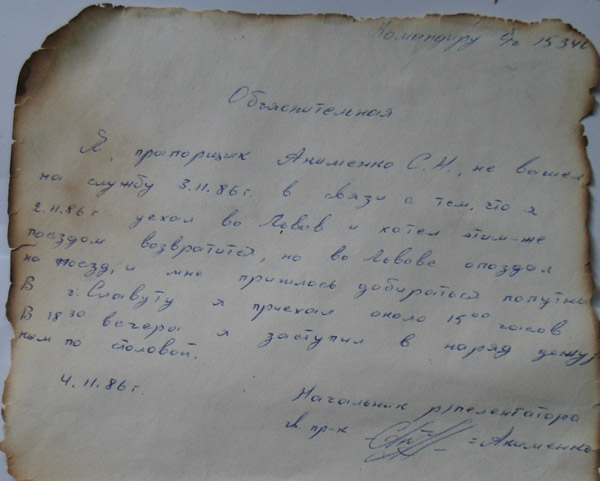 Командиру в/ч 15346
Объяснительная
Я, прапорщик Акименко С.Н., не вышел
на службу 3.11.86г. в связи с тем, что я
2.11.86г уехал во Львов и хотел этим-же
поездом возвратится, но во Львове опоздал
на поезд, и мне пришлось добиратося попутка
В г. Славуту я приехал около 15⁰⁰ часов
В 18³⁰ вечера я заступил в наряд дежур
ным по столовой.
4.11.86г.
Начальник р/пелентатора
пр-к = Акименко